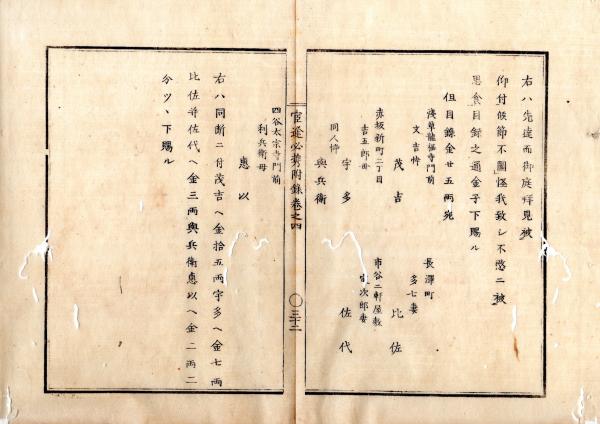 右ハ先達而御庭拝見被
仰付候節不圖怪我致シ不愍ニ被
思食目録之通金子下賜ル
但目録金廿五両宛
浅草龍福寺門前
文吉忰
茂吉
長澤町
多七妻
比佐
赤坂新町二丁目
吉五郎母
宇多
市谷二軒屋敷
次郎妻
佐代
同人忰
與兵衛
宦遊必携附録巻之四
〇三十二
四谷太宗寺門前
利兵衛母
惠以
右ハ同断ニ付茂吉ヘ金拾五両宇多ヘ金七両
比佐并佐代ヘ金三両與兵衛惠以ヘ金二両二
分ツヽ下賜ル